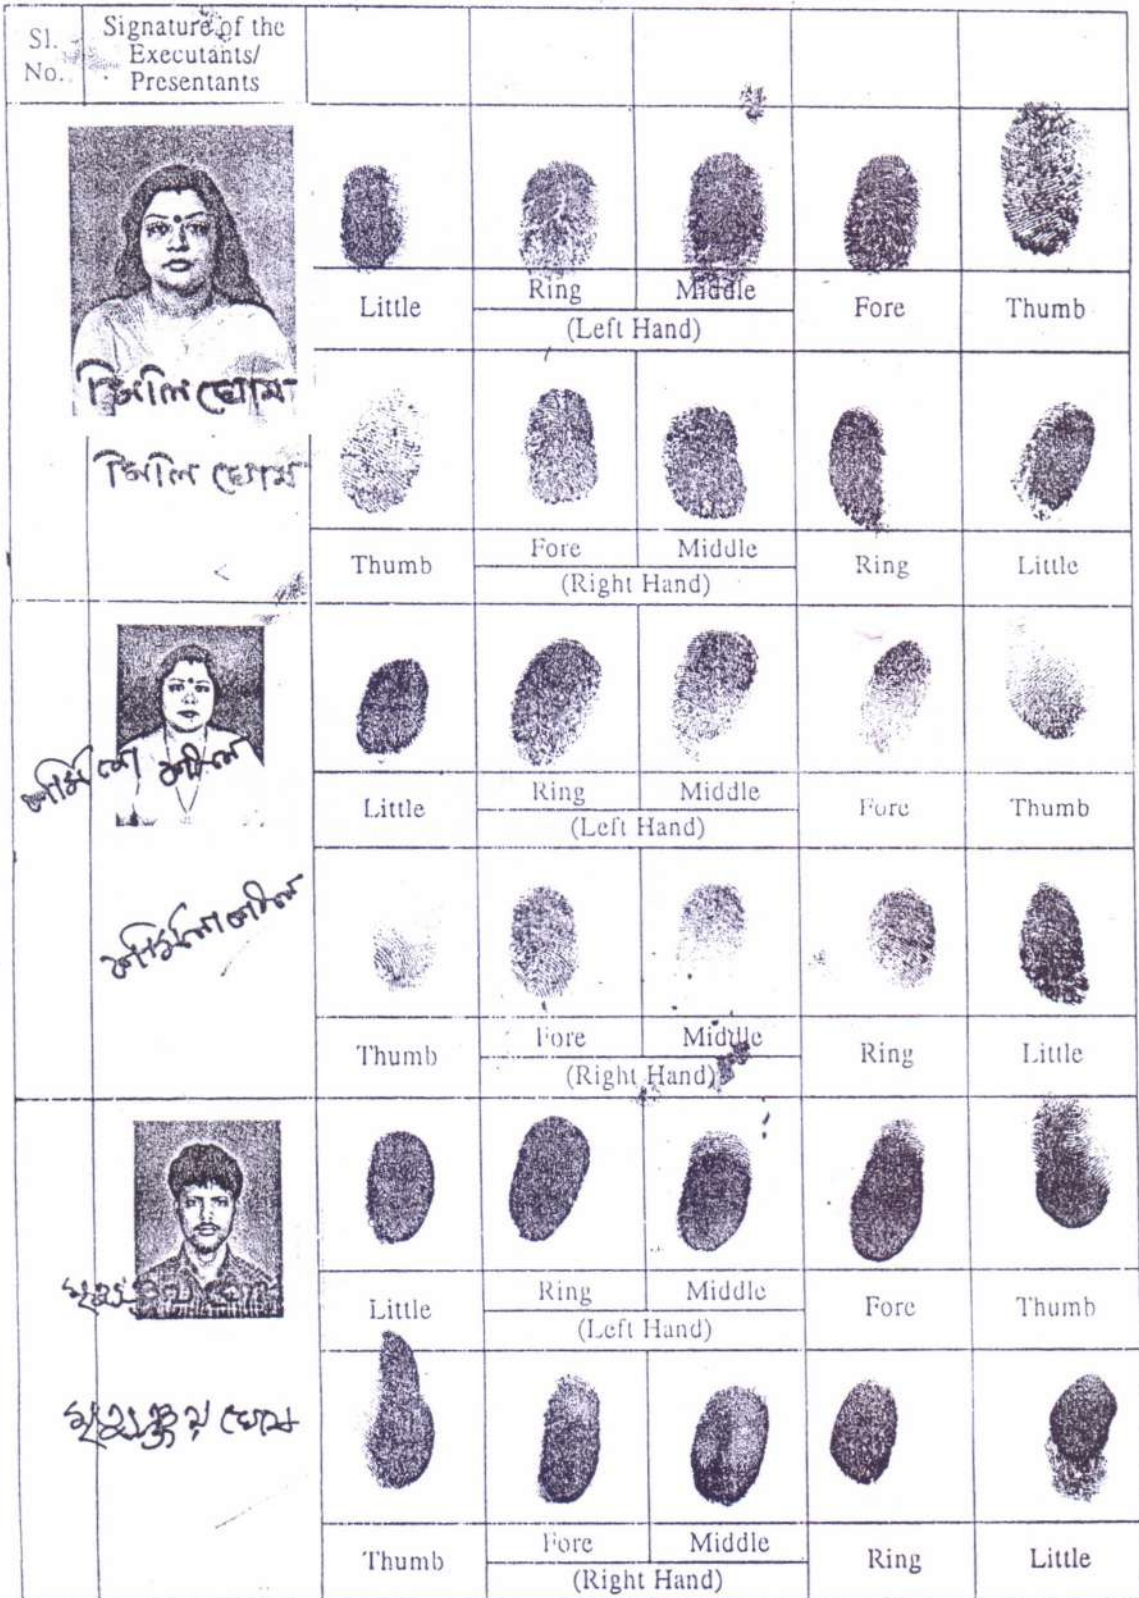 Sl. No.
Signature of the
Executants/
Presentants
Little Ring Middle Fore Thumb
(Left Hand)
লিলি ঘোষ
লিলি ঘোষ
Thumb Fore Middle Ring Little
(Right Hand)
Little Ring Middle Fore Thumb
(Left Hand)
Thumb Fore Middle Ring Little
(Right Hand)
Little Ring Middle Fore Thumb
(Left Hand)
ঘোষ
Thumb Fore Middle Ring Little
(Right Hand)